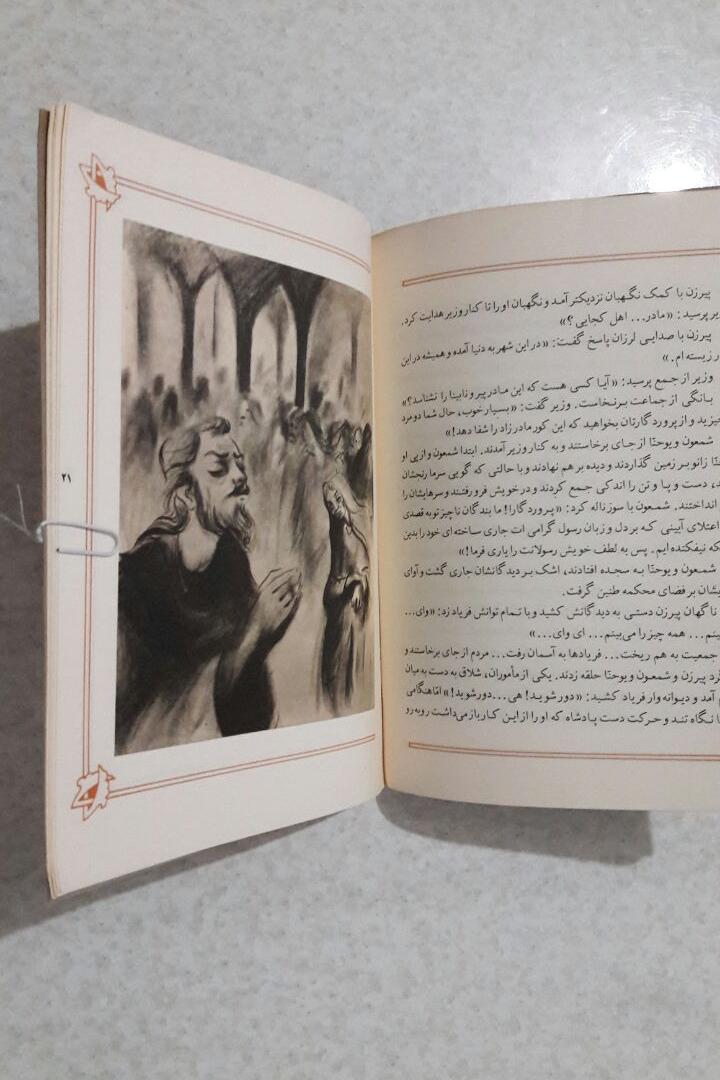 پیرزن با کمک نگهبان نزدیکتر آمد و نگهبان او را تا کنار وزیر هدایت کرد.
پرسید: «مادر... اهل کجایی؟»
پیرزن با صدایی لرزان پاسخ گفت: «در این شهر به دنیا آمده و همیشه در این
زیسته ام.»
وزیر از جمع پرسید: «آیا کسی هست که این مادر پیر و نابینا را نشناسد؟»
بانگی از جماعت برنخاست. وزیر گفت: «بسیار خوب، حال شما دو مرد
و از پروردگارتان بخواهید که این کور مادرزاد را شفا دهد!»
شمعون و یوحنّا از جای برخاستند و به کنار وزیر آمدند. ابتدا شمعون و از پی او
زانو بر زمین گذاردند و دیده بر هم نهادند و با حالتی که گویی سرما رنجشان
دست و پا و تن را اندکی جمع کردند و در خویش فرو رفتند و سرهایشان را
انداختند. شمعون با سوز ناله کرد: «پروردگارا! ما بندگان ناچیز تو به قصدی
اعتلای آیینی که بر دل و زبان رسول گرامی ات جاری ساخته ای خود را بدین
نیفکنده ایم. پس به لطف خویش رسولانت را یاری فرما!»
شمعون و یوحنّا به سجده افتادند، اشک بر دیدگانشان جاری گشت و آوای
بر فضای محکمه طنین گرفت.
ناگهان پیرزن دستی به دیدگانش کشید و با تمام توانش فریاد زد: «وای...
همه چیز را می بینم... ای وای...»
جمعیت به هم ریخت... فریادها به آسمان رفت... مردم از جای برخاستند و
پیرزن و شمعون و یوحنّا حلقه زدند. یکی از مأموران، شلاق به دست به میان
آمد و دیوانه وار فریاد کشید: «دور شوید! هی... دور شوید!» امّا هنگامی
نگاه تند و حرکت دست پادشاه که او را از این کار باز می داشت روبه رو
۲۱